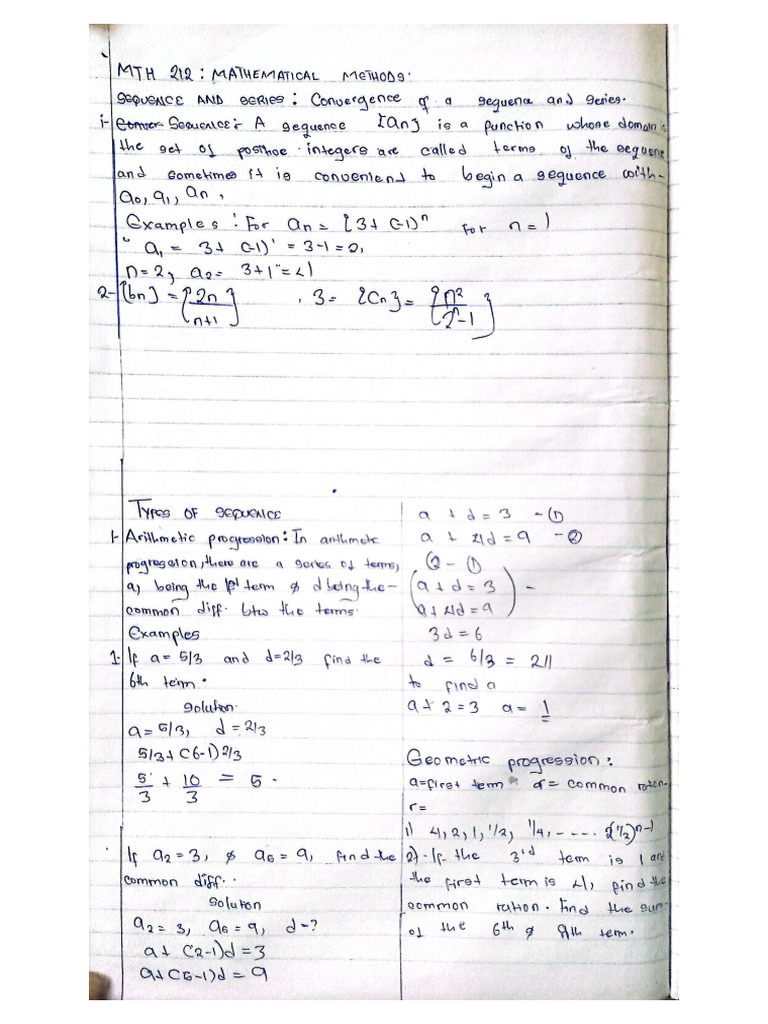 MTH 212 : MATHEMATICAL METHODS.
SEQUENCE AND SERIES : Convergence of a sequence and series.
i- Conver SEQUENCE :- A sequence {an} is a function whose domain
the set of positive integers are called terms of the sequence
and sometimes it is convenient to begin a sequence with
a0, a1, an,
Examples : For an = {3 + (-1)^n for n = 1
a1 = 3 + (-1)' = 3-1 = 2,
n = 2, a2 = 3+1 = 4
2- {bn} = {2n/n+1} , 3 = {Cn} = {n²/2ⁿ-1}
TYPES OF SEQUENCE
1- Arithmetic progression : In arithmetc
progression, there are a series of terms,
a, being the 1st term & d being the
common diff. btw the terms.
Examples
1- If a = 5/3 and d = 2/3 find the
6th term.
Solution.
a = 5/3, d = 2/3
5/3 + (6-1) 2/3
5/3 + 10/3 = 5.
If a2 = 3, & a5 = 9, find the
common diff..
Solution
a2 = 3, a5 = 9, d - ?
a + (2-1)d = 3
a + (5-1)d = 9
a + d = 3 - (1)
a + 4d = 9 - (2)
(2) - (1)
(a + d = 3
a + 4d = 9) -
3d = 6
d = 6/3 = 2//
to find a
a + 2 = 3 a = 1
Geometric progression :
a = first term r = common ration.
r =
1) 4, 2, 1, 1/2, 1/4, - - - - . 2(1/2)^n-1
2) - If the 3rd term is 1 and
the first term is 4, find the
common ration. Find the sum
of the 6th & 8th term.